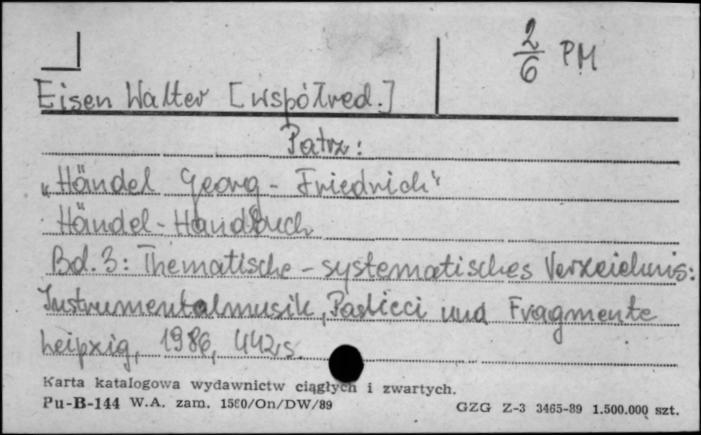 2/6 PM
Eisen Walter [współred.]
Patrz:
„Händel Georg - Friedrich"
Händel - Handbuch
Bd. 3: Thematische - systematisches Verzeichnis:
Instrumentalmusik, Pasticci und Fragmente
Leipzig, 1986, 442 s.
Karta katalogowa wydawnictw ciągłych i zwartych.
Pu-B-144 W.A. zam. 1580/On/DW/89 GZG Z-3 3465-89 1.500.000 szt.